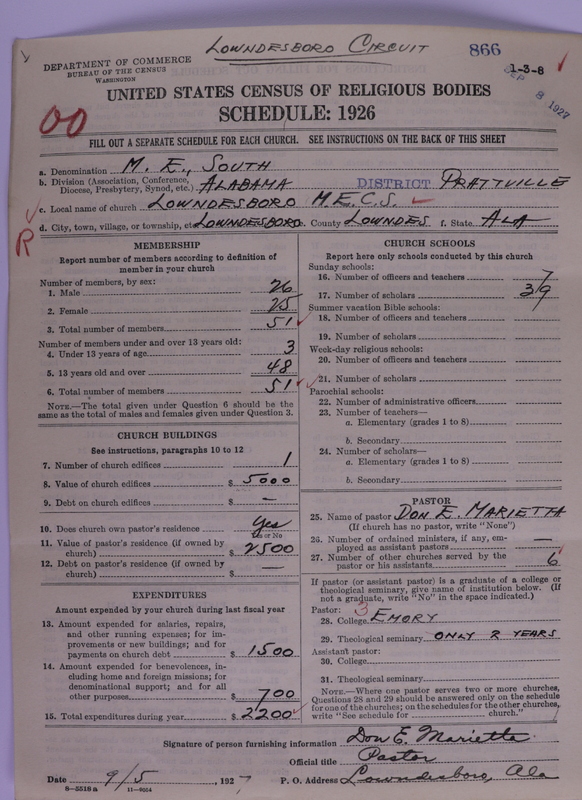 Lowndesboro Circuit
866
DEPARTMENT OF COMMERCE
BUREAU OF THE CENSUS
WASHINGTON
1-3-8
SEP 8 1927
UNITED STATES CENSUS OF RELIGIOUS BODIES
SCHEDULE: 1926
00
FILL OUT A SEPARATE SCHEDULE FOR EACH CHURCH. SEE INSTRUCTIONS ON THE BACK OF THIS SHEET
a. Denomination M. E., South
b. Division (Association, Conference, Diocese, Presbytery, Synod, etc.) Alabama DISTRICT Prattville
c. Local name of church Lowndesboro M.E.C.S.
d. City, town, village, or township, etc. Lowndesboro e. County Lowndes f. State Ala
R
MEMBERSHIP
Report number of members according to definition of
member in your church
Number of members, by sex:
1. Male 26
2. Female 25
3. Total number of members 51
Number of members under and over 13 years old:
4. Under 13 years of age 3
5. 13 years old and over 48
6. Total number of members 51
NOTE.—The total given under Question 6 should be the
same as the total of males and females given under Question 3.
CHURCH BUILDINGS
See instructions, paragraphs 10 to 12
7. Number of church edifices 1
8. Value of church edifices $ 5000
9. Debt on church edifices $ —
10. Does church own pastor's residence Yes
Yes or No
11. Value of pastor's residence (if owned by
church) $ 2500
12. Debt on pastor's residence (if owned by
church) $ —
EXPENDITURES
Amount expended by your church during last fiscal year
13. Amount expended for salaries, repairs,
and other running expenses; for im-
provements or new buildings; and for
payments on church debt $ 1500
14. Amount expended for benevolences, in-
cluding home and foreign missions; for
denominational support; and for all
other purposes $ 700
15. Total expenditures during year $ 2200
CHURCH SCHOOLS
Report here only schools conducted by this church
Sunday schools:
16. Number of officers and teachers 7
17. Number of scholars 39
Summer vacation Bible schools:
18. Number of officers and teachers
19. Number of scholars
Week-day religious schools:
20. Number of officers and teachers
21. Number of scholars
Parochial schools:
22. Number of administrative officers
23. Number of teachers—
a. Elementary (grades 1 to 8)
b. Secondary
24. Number of scholars—
a. Elementary (grades 1 to 8)
b. Secondary
PASTOR
25. Name of pastor Don E. Marietta
(If church has no pastor, write "None")
26. Number of ordained ministers, if any, em-
ployed as assistant pastors —
27. Number of other churches served by the
pastor or his assistants 6
If pastor (or assistant pastor) is a graduate of a college or
theological seminary, give name of institution below. (If
not a graduate, write "No" in the space indicated.)
Pastor: 3
28. College Emory
29. Theological seminary only 2 years
Assistant pastor:
30. College
31. Theological seminary
NOTE.—Where one pastor serves two or more churches,
Questions 28 and 29 should be answered only on the schedule
for one of the churches; on the schedules for the other churches,
write "See schedule for church."
Signature of person furnishing information Don E. Marietta
Official title Pastor
Date 9/5, 1927 P. O. Address Lowndesboro, Ala
8-5518a 11-9514